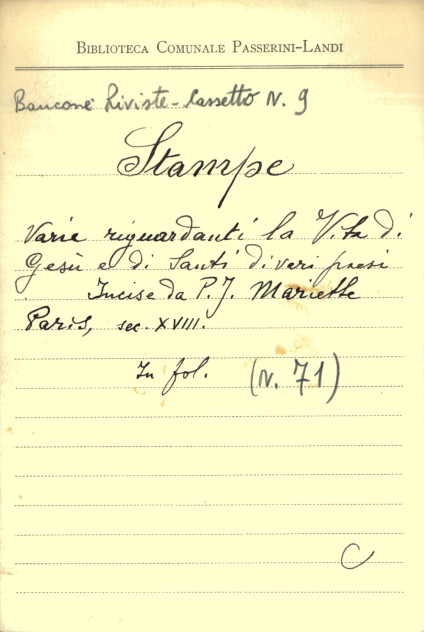 BIBLIOTECA COMUNALE PASSERINI-LANDI
Bancone Riviste - Cassetto N. 9
Stampe
Varie riguardanti la Vita di
Gesù e di Santi di vari paesi
Incise da P. J. Mariette
Paris, sec. XVIII.
In fol. (N. 71)
C